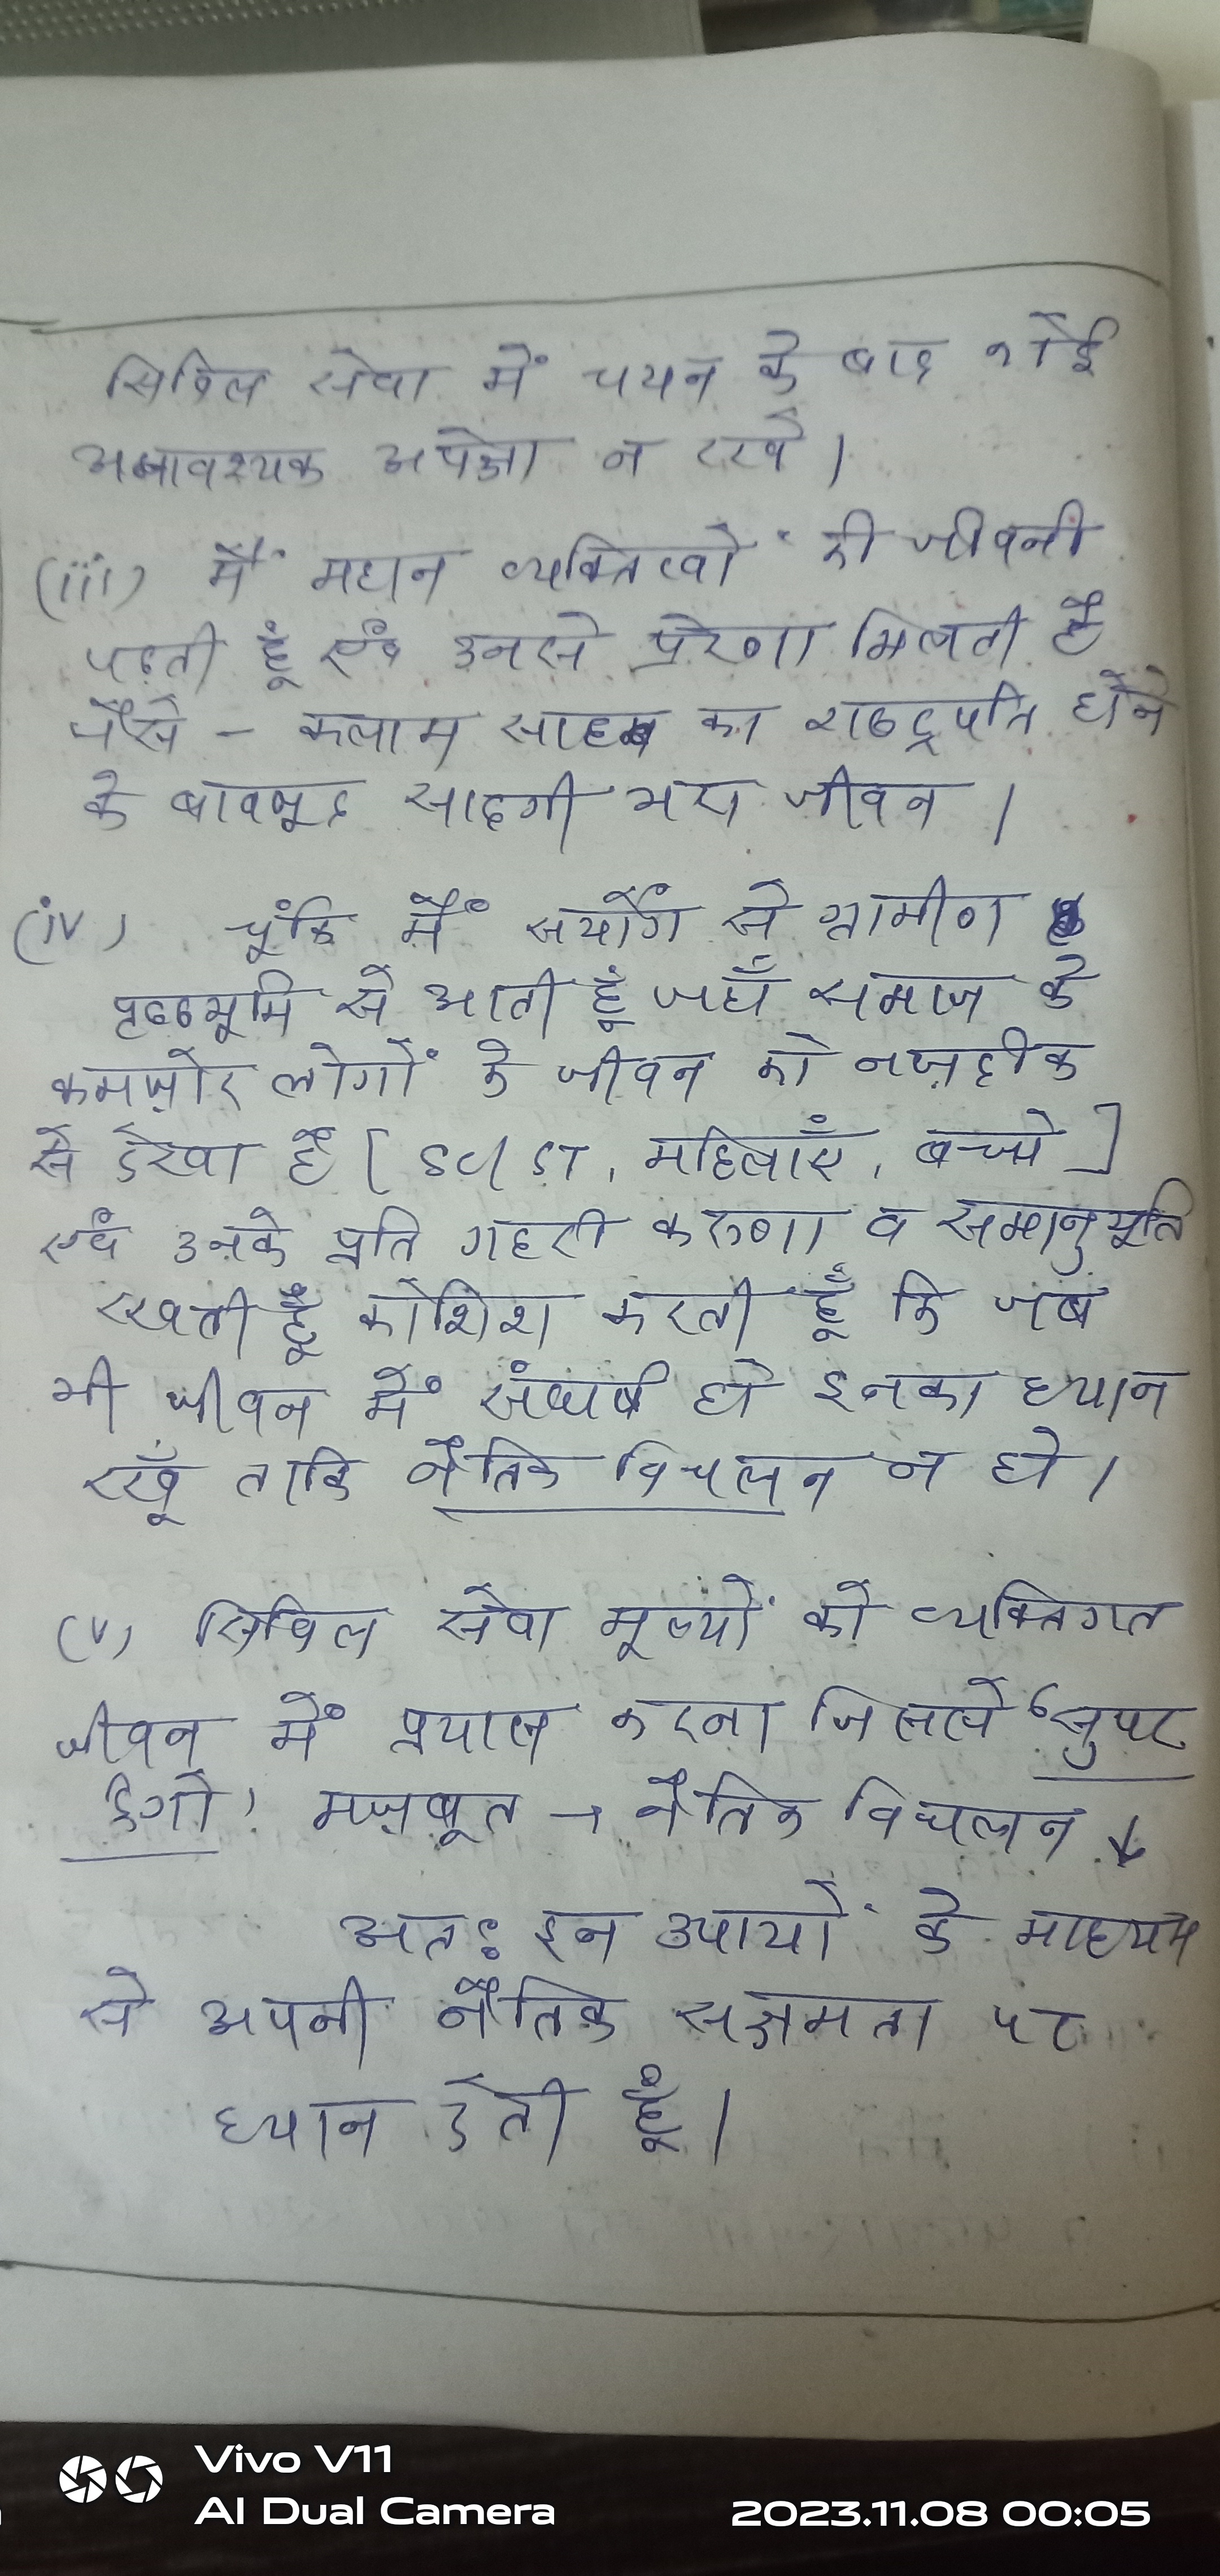 सिविल सेवा में चयन के बाद कोई
अनावश्यक अपेक्षा न रखें।
(iii) मैं महान व्यक्तित्वों की जीवनी
पढ़ती हूं एवं उनसे प्रेरणा मिलती है
जैसे - कलाम साहब का राष्ट्रपति होने
के बावजूद सादगी भरा जीवन।
(iv) चूंकि मैं सयोंग से ग्रामीण
पृष्ठभूमि से आती हूं जहाँ समाज के
कमज़ोर लोगों के जीवन को नज़दीक
से देखा है [SC/ST, महिलाएँ, बच्चे]
एवं उनके प्रति गहरी करुणा व समानुभूति
रखती हूँ कोशिश करती हूँ कि जब
भी जीवन में संघर्ष हो इनका ध्यान
रखूँ ताकि नैतिक विचलन न हो।
(v) सिविल सेवा मूल्यों को व्यक्तिगत
जीवन में प्रयास करना जिससे 'सुपर
ईगो' मज़बूत → नैतिक विचलन ↓
अतः इन उपायों के माध्यम
से अपनी नैतिक सक्षमता पर
ध्यान देती हूँ।
Vivo V11
AI Dual Camera
2023.11.08 00:05